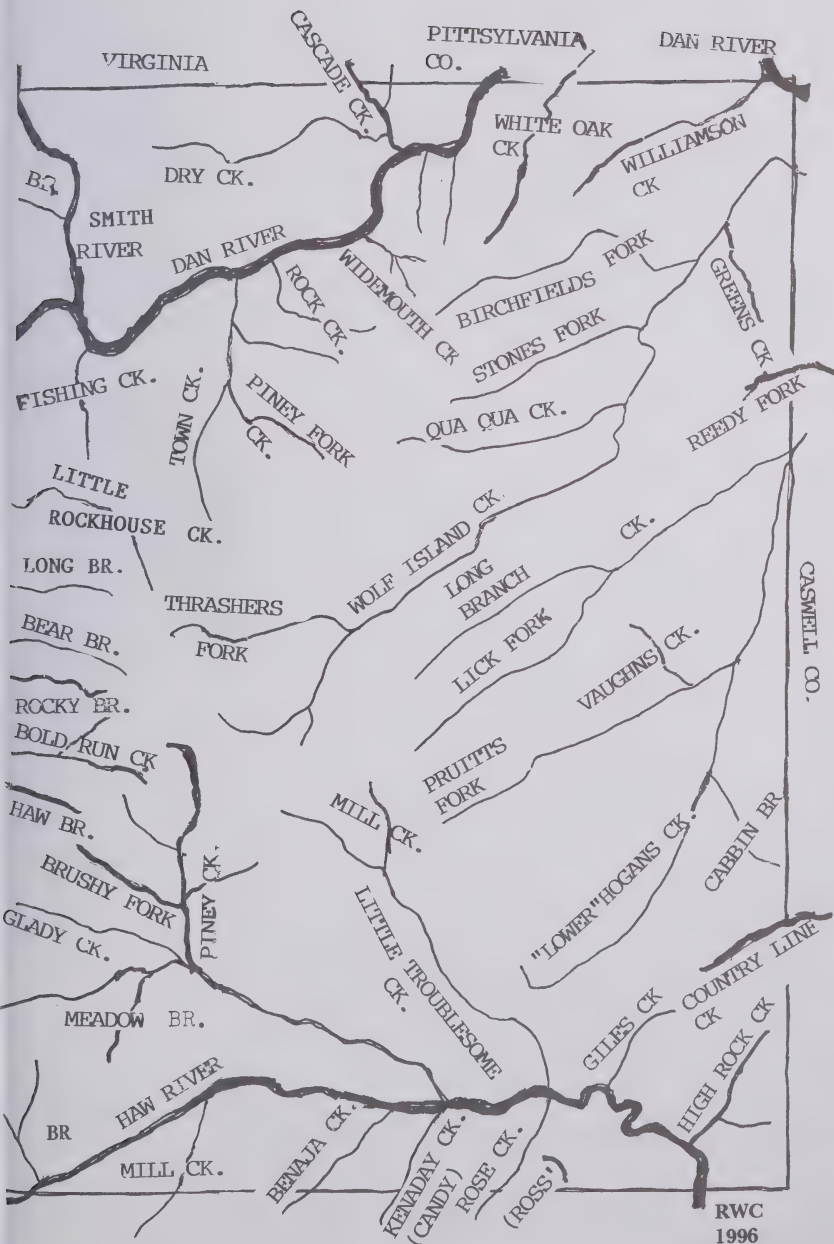 VIRGINIA
CASCADE CK.
PITTSYLVANIA
CO.
DAN RIVER
WHITE OAK
CK
WILLIAMSON
CK
DRY CK.
BR.
SMITH
RIVER
DAN RIVER
ROCK CK.
WIDEMOUTH CK
BIRCHFIELDS FORK
GREENS CK
STONES FORK
FISHING CK.
TOWN CK.
PINEY FORK
CK.
QUA QUA CK.
REEDY FORK
LITTLE
ROCKHOUSE CK.
WOLF ISLAND CK.
LONG BR.
LONG
BRANCH
CK.
THRASHERS
FORK
CASWELL CO.
BEAR BR.
LICK FORK
VAUGHNS CK.
ROCKY BR.
BOLD RUN CK
PRUITTS
FORK
HAW BR.
MILL CK.
CABBIN BR
BRUSHY FORK
PINEY CK.
"LOWER" HOGANS CK.
GLADY CK.
LITTLE TROUBLESOME
CK.
COUNTRY LINE
CK
MEADOW BR.
GILES CK
HIGH ROCK CK
HAW RIVER
BR
MILL CK.
BENAJA CK.
KENADAY CK.
(CANDY)
ROSE CK.
(ROSS')
RWC
1996